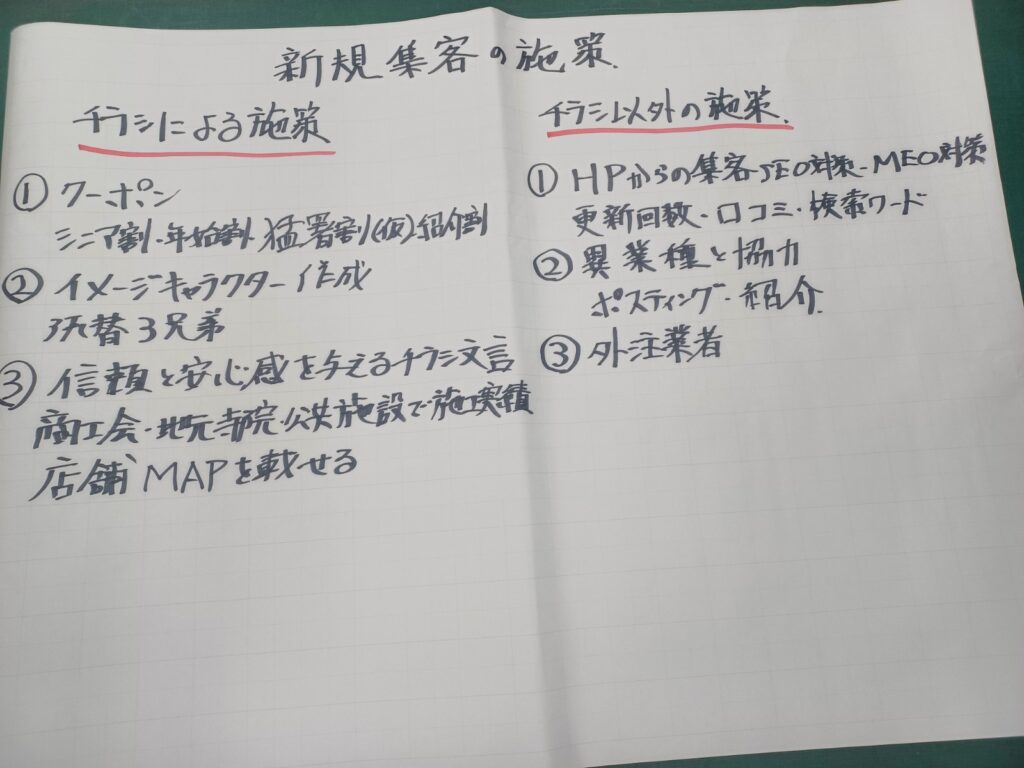 新規集客の施策.
チラシによる施策
① クーポン
シニア割・年始割 猛署割(仮)紹介割
② イメージキャラクター作成
張替3兄弟
③ 信頼と安心感を与えるチラシ文言
商工会・地元寺院・公共施設で施工実績
店舗MAPを載せる
チラシ以外の施策.
① HPからの集客 SEO対策・MEO対策
更新回数・口コミ・検索ワード
② 異業種と協力
ポスティング・紹介
③ 外注業者